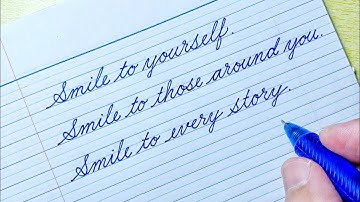 Smile to yourself.
Smile to those around you.
Smile to every story.